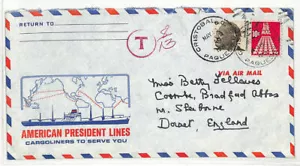 RETURN TO
T
CRISTOBAL
PAQUE
MAY
10c
VIA AIR MAIL
Miss Betty
Coombe, Bradford Abbas
Sherborne
Dorset, England
AMERICAN PRESIDENT LINES
CARGOLINERS TO SERVE YOU